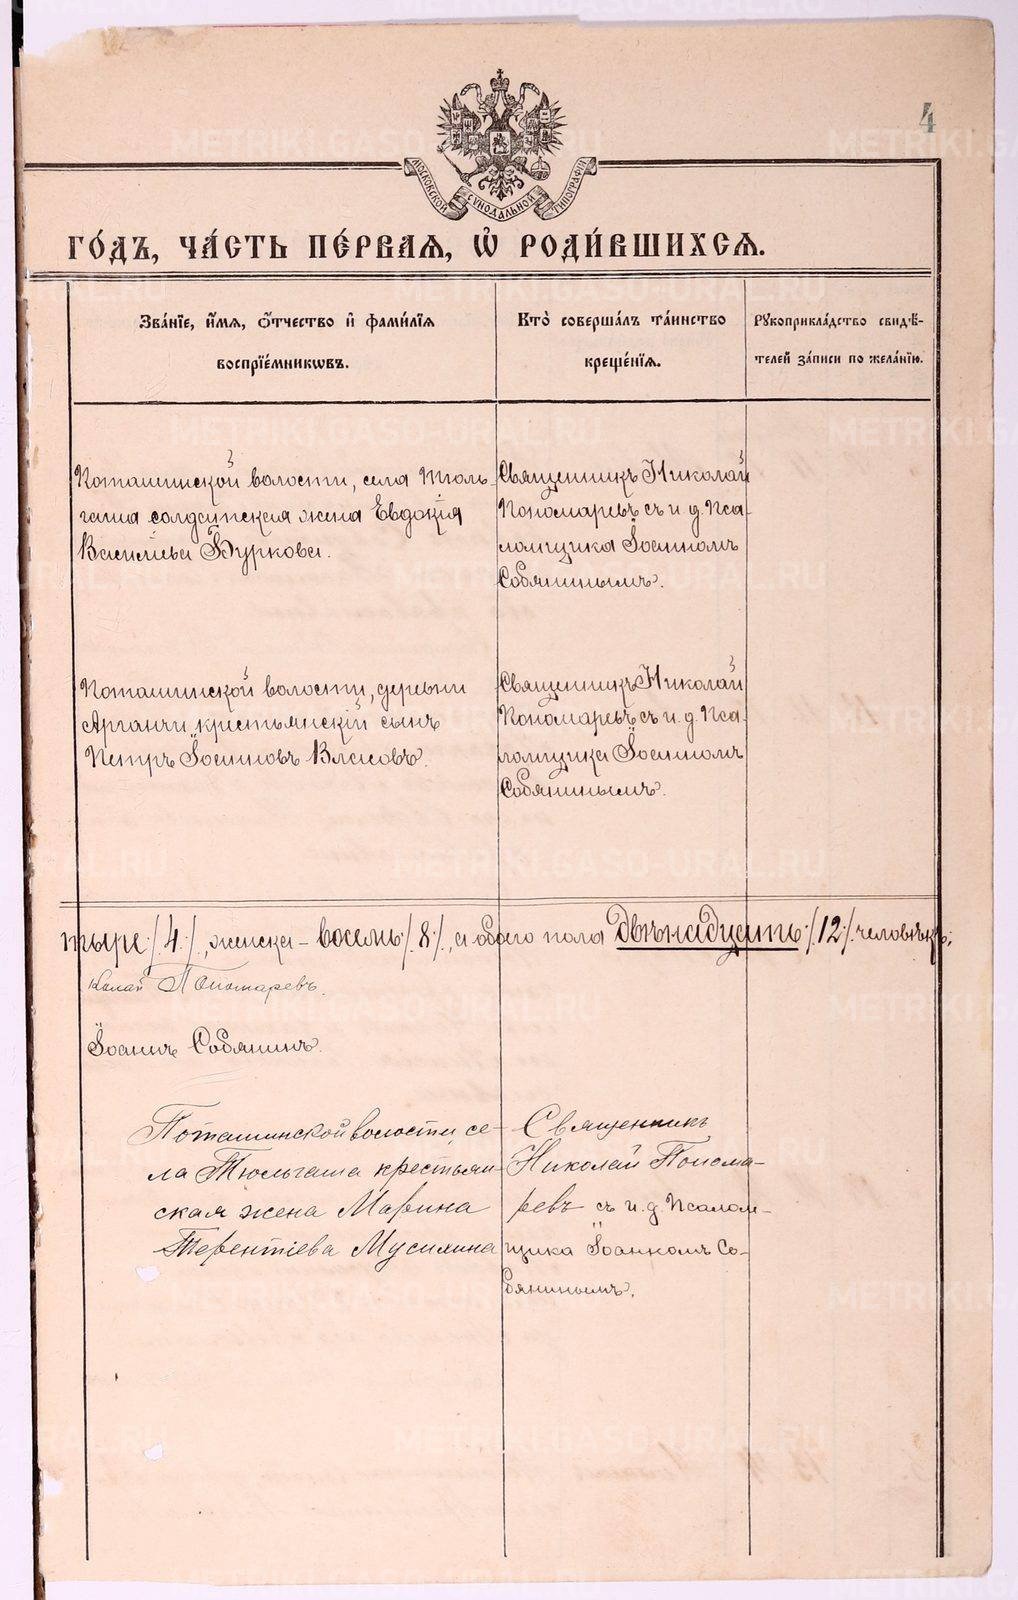 4
МОСКОВСКОЙ СѴНОДАЛЬНОЙ ТИПОГРАФІИ
ГО́ДЪ, ЧА́СТЬ ПЕ́РВАЯ, Ѡ҆ РОДИ́ВШИХСЯ.
Зва́нїе, и҆́мѧ, ѻ҆́тчество и҆ фами́лїѧ
воспрїе́мникѡвъ.
Кто̀ соверша́лъ та́инство
креще́нїѧ.
Рꙋкоприкла́дство свидѣ́-
телей за́писи по жела́нїю.
Поташинской волости, села Тюль-
гаша солдатская жена Евдокія
Васильева Буркова.
Священникъ Николай
Пономаревъ съ и. д. Пса-
ломщика Іоанномъ
Собянинымъ.
Поташинской волости, деревни
Арганчи крестьянскій сынъ
Петръ Іоанновъ Власовъ.
Священникъ Николай
Пономаревъ съ и. д. Пса-
ломщика Іоанномъ
Собянинымъ.
тыре /4/, женска – восемь /8/, а обоего пола двѣнадцать /12/ человѣкъ;
колай Пономаревъ.
Іоаннъ Собянинъ.
Поташинской волости, се-
ла Тюльгаша крестьян-
ская жена Марина
Терентіева Мусихина
Священникъ
Николай Понома-
ревъ съ и. д. Псалом-
щика Іоанномъ Со-
бянинымъ.
METRIKI.GASO-URAL.RU